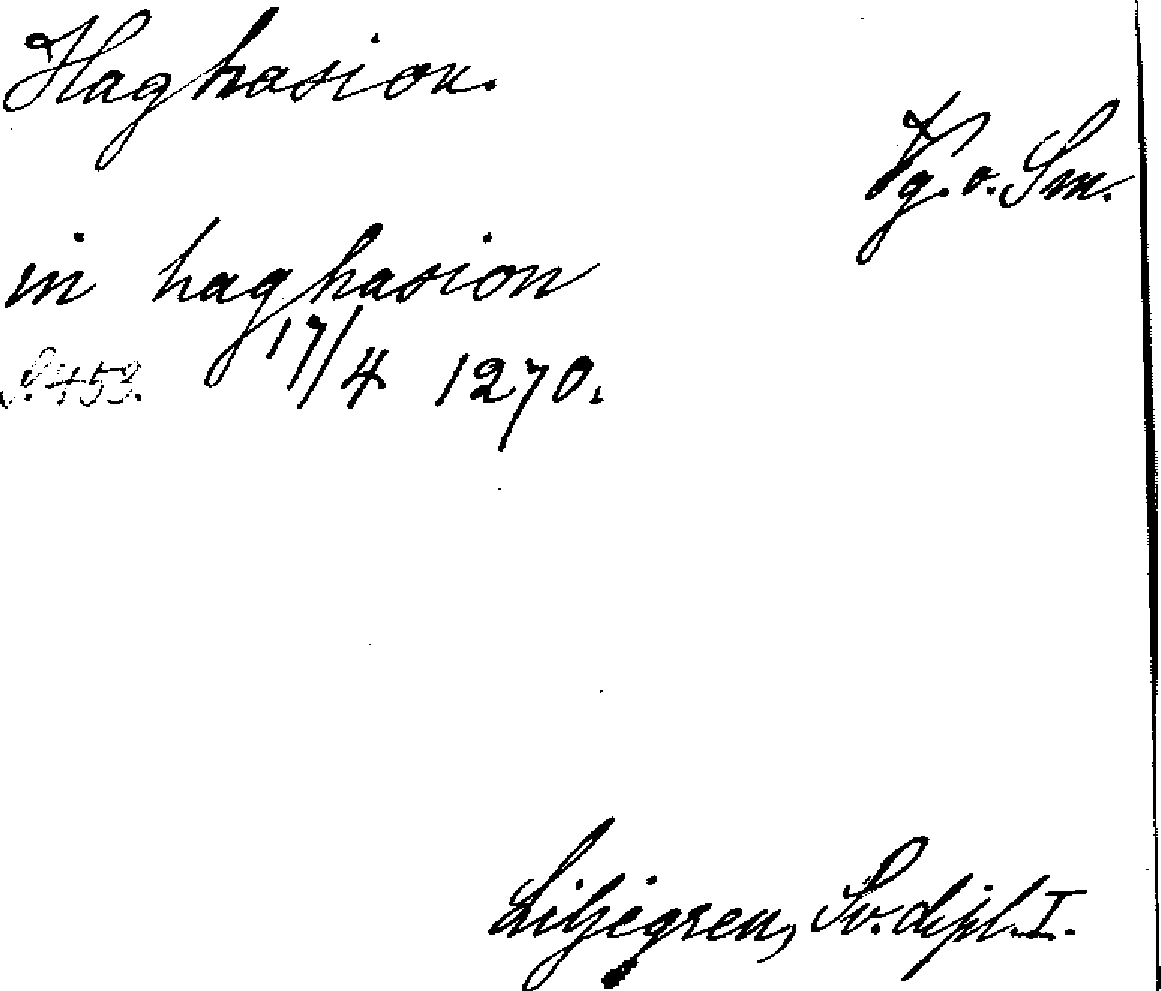 Haghasion.
Vg. o. Sm.
in haghasion
S. 453. 17/4 1270.
Liljegren, Sv. dipl. I.